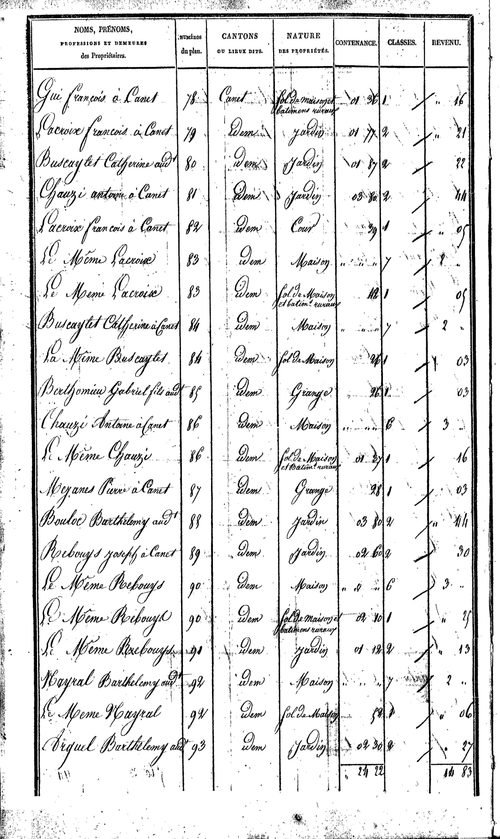 NOMS, PRÉNOMS, PROFESSIONS ET DEMEURES des Propriétaires. | NUMÉROS du plan. | CANTONS OU LIEUX DITS. | NATURE DES PROPRIÉTÉS. | CONTENANCE. | CLASSES. | REVENU.
Gui françois à Canet 78 Canet Sol de maison et batimens ruraux 01 36 1 " 16
Lacroix francois à Canet 79 idem jardin 01 77 2 " 21
Buscaylet Catherine aud.t 80 idem Jardin 01 87 2 " 22
Chauzi antoine à Canet 81 idem Jardin 03 80 2 " 44
Lacroix françois à Canet 82 idem Cour 39 1 " 05
Le Même Lacroix 83 idem Maison " " " 7 2 "
Le Même Lacroix 83 idem Sol de Maison et batim.s ruraux 42 1 05
Buscaylet Catherine à Canet 84 idem Maison " " 7 2 "
La Même Buscaylet 84 idem Sol de Maison 26 1 " 03
Berthomieu Gabriel fils aud.t 85 idem Grange 26 1 03
Chauzi Antoine à Canet 86 idem Maison " " 6 3 "
Le Même Chauzi 86 idem Sol de Maison et Batim.s ruraux 01 37 1 " 16
Mezanes Pierre à Canet 87 idem Grange 28 1 " 03
Bouloc Barthélemy aud.t 88 idem jardin 03 80 2 " 44
Rebouys joseph à Canet 89 idem Jardin 02 60 2 " 30
Le Même Rebouys 90 idem Maison " " " 6 3 "
Le Même Rebouys 90 idem Sol de maison et batimens ruraux 02 10 1 " 25
Le Même Rebouys 91 idem Jardin 01 12 2 " 13
Nayral Barthelemy aud.t 92 idem Maison " " 7 2 "
Le Même Nayral 92 idem Sol de Maison 52 1 " 06
Viguel Barthélemy aud.t 93 idem Jardin 02 30 2 " 27
" 24 22 14 83